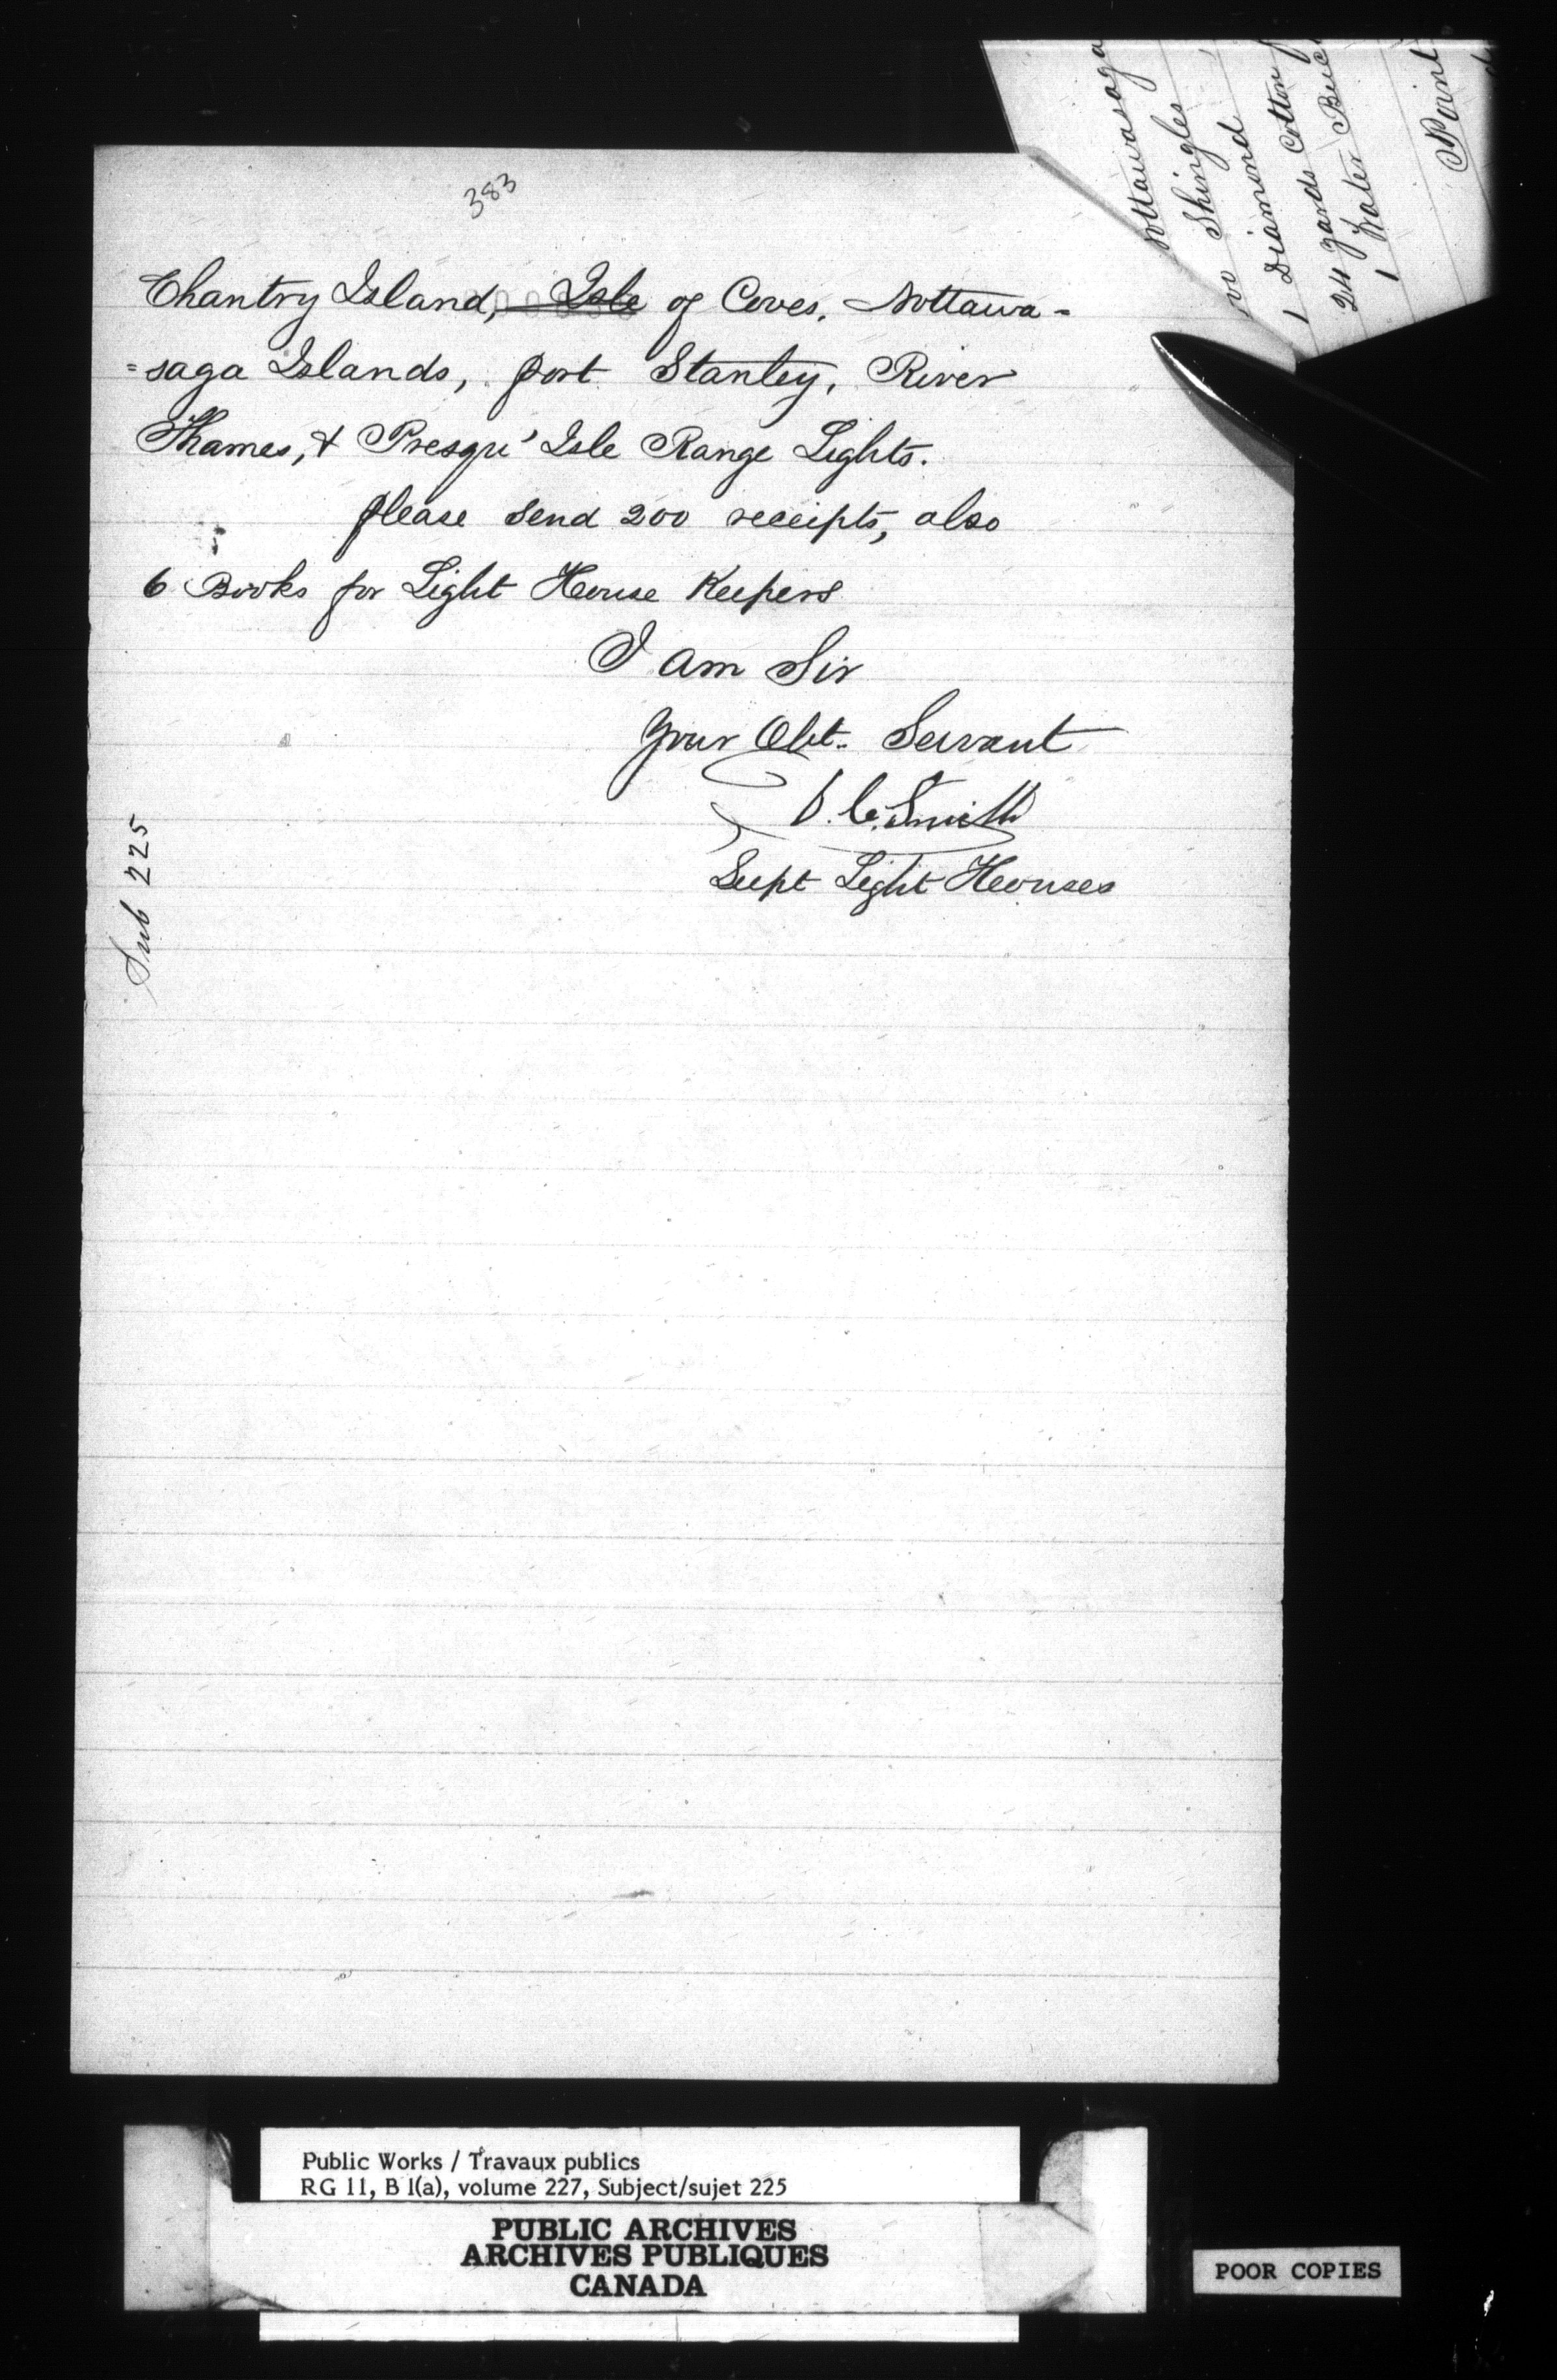 383
Chantry Island, Isle of Coves, Nottawa-
=saga Islands, port Stanley, River
Thames, & Presqu' Isle Range Lights.
please send 200 receipts, also
6 Books for Light House Keepers
I am Sir
Your Obt. Servant
D. C. Smith
Supt Light Houses
Sub 225
Nottawasaga
Shingles
1 Diamond
24 yards Cotton
1 Water Buc
Paint
Public Works / Travaux publics
RG 11, B 1(a), volume 227, Subject/sujet 225
PUBLIC ARCHIVES
ARCHIVES PUBLIQUES
CANADA
POOR COPIES